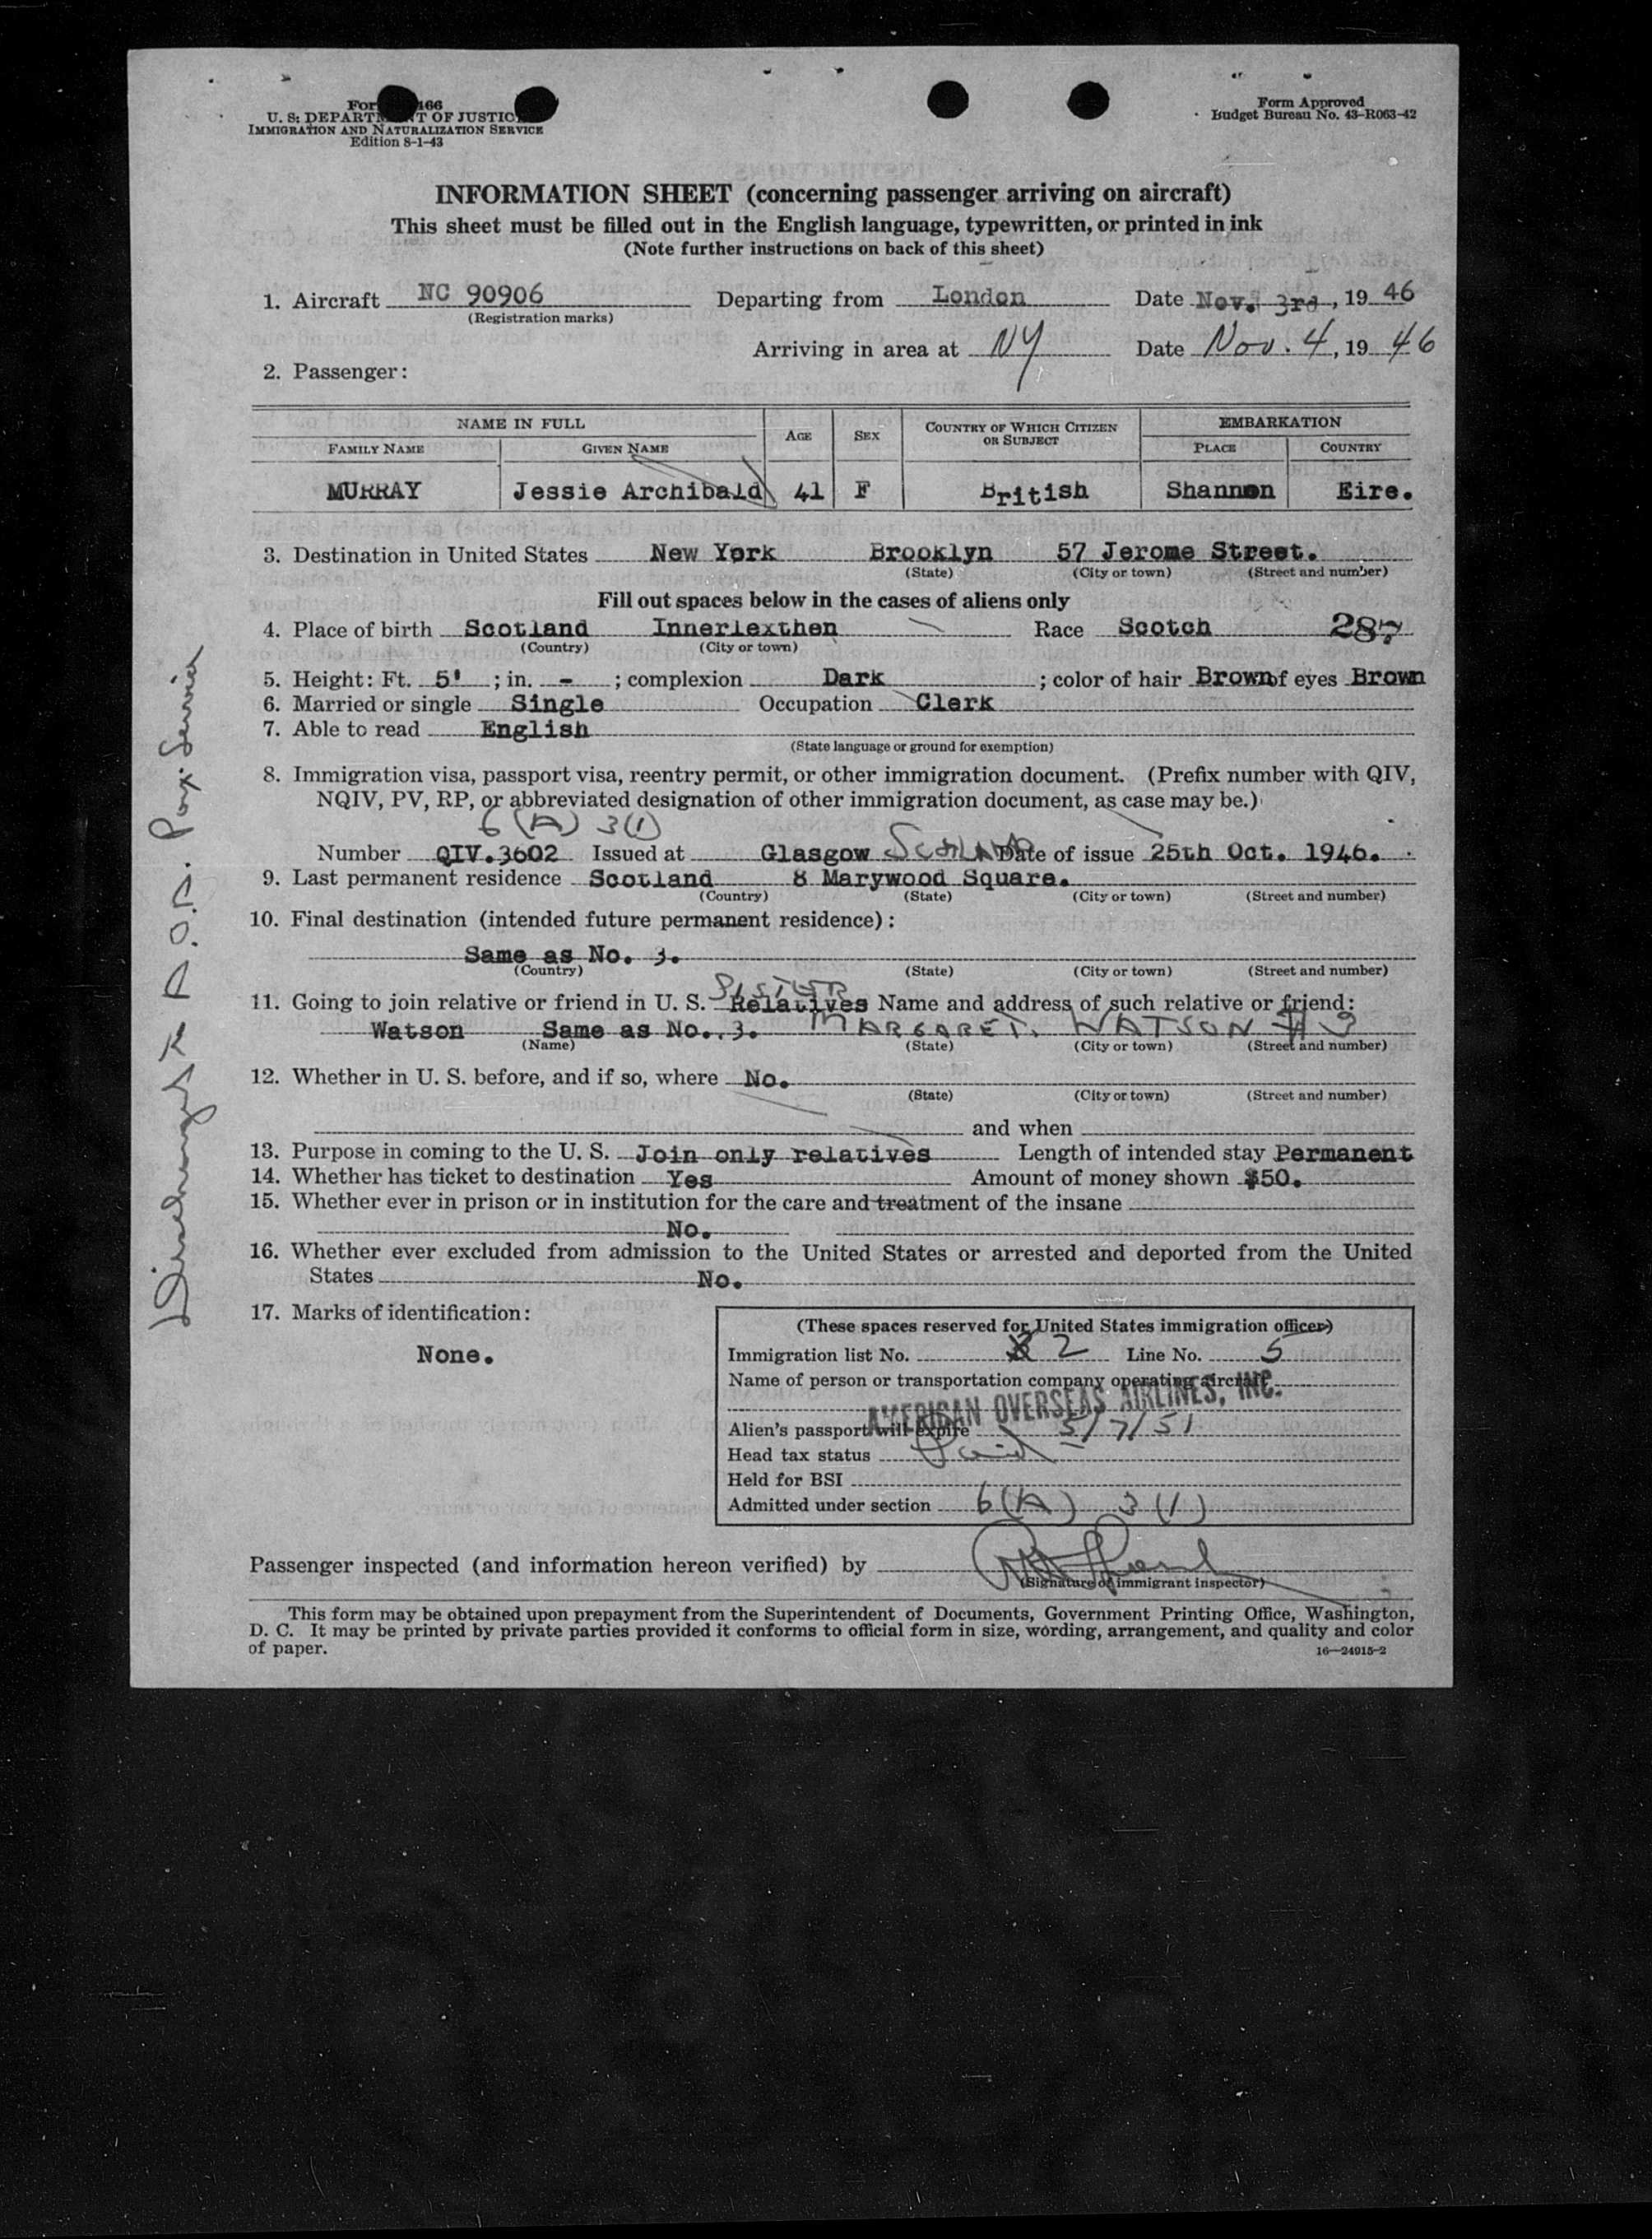 Form 466
U. S. DEPARTMENT OF JUSTICE
IMMIGRATION AND NATURALIZATION SERVICE
Edition 8-1-43
Form Approved
Budget Bureau No. 43-R063-42
INFORMATION SHEET (concerning passenger arriving on aircraft)
This sheet must be filled out in the English language, typewritten, or printed in ink
(Note further instructions on back of this sheet)
1. Aircraft NC 90906 Departing from London Date Nov. 3rd, 19 46
(Registration marks)
Arriving in area at NY Date Nov. 4, 19 46
2. Passenger:
NAME IN FULL AGE SEX COUNTRY OF WHICH CITIZEN OR SUBJECT EMBARKATION
FAMILY NAME GIVEN NAME PLACE COUNTRY
MURRAY Jessie Archibald 41 F British Shannon Eire.
3. Destination in United States New York Brooklyn 57 Jerome Street.
(State) (City or town) (Street and number)
Fill out spaces below in the cases of aliens only
4. Place of birth Scotland Innerlexthen Race Scotch 287
(Country) (City or town)
5. Height: Ft. 5' ; in. - ; complexion Dark ; color of hair Brown of eyes Brown
6. Married or single Single Occupation Clerk
7. Able to read English
(State language or ground for exemption)
8. Immigration visa, passport visa, reentry permit, or other immigration document. (Prefix number with QIV,
NQIV, PV, RP, or abbreviated designation of other immigration document, as case may be.)
6 (A) 3(1)
Number QIV.3602 Issued at Glasgow SCOTLAND Date of issue 25th Oct. 1946.
9. Last permanent residence Scotland 8 Marywood Square.
(Country) (State) (City or town) (Street and number)
10. Final destination (intended future permanent residence):
Same as No. 3.
(Country) (State) (City or town) (Street and number)
SISTER
11. Going to join relative or friend in U. S. Relatives Name and address of such relative or friend:
Watson Same as No. 3. MARGARET. WATSON #3
(Name) (State) (City or town) (Street and number)
12. Whether in U. S. before, and if so, where No.
(State) (City or town) (Street and number)
and when
13. Purpose in coming to the U. S. Join only relatives Length of intended stay Permanent
14. Whether has ticket to destination Yes Amount of money shown $50.
15. Whether ever in prison or in institution for the care and treatment of the insane
No.
16. Whether ever excluded from admission to the United States or arrested and deported from the United
States No.
17. Marks of identification:
None.
(These spaces reserved for United States immigration officer)
Immigration list No. 2 Line No. 5
Name of person or transportation company operating aircraft
AMERICAN OVERSEAS AIRLINES, INC.
Alien's passport will expire 5/7/51
Head tax status Paid
Held for BSI
Admitted under section 6(A) 3(1)
Passenger inspected (and information hereon verified) by
(Signature of immigrant inspector)
This form may be obtained upon prepayment from the Superintendent of Documents, Government Printing Office, Washington,
D. C. It may be printed by private parties provided it conforms to official form in size, wording, arrangement, and quality and color
of paper.
16—24915-2